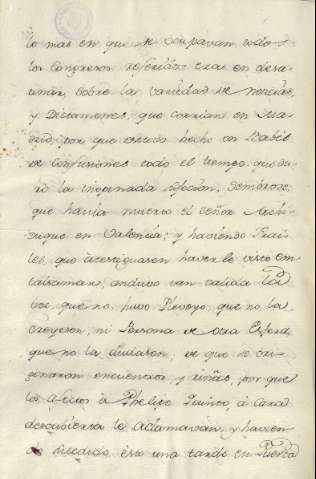 lo mas en que se ocupavan todos
los Congresos referidos eran en desa
tinar, sobre la variedad de noticias,
y Dictamenes, que corrian en Ma
drid, por que estubo hecho un Babel
de confusiones todo el tiempo que du
ró la inopinada Sembrose,
que havia muerto el señor Archi
duque en Valencia; y haviendo Frai
les, que atestiguaron haverle visto em
balsamar; anduvo tan valida
voz, que no huvo Pleveyo, que no la
creyesen, ni Persona de otra Esfera
que no la dudasen, de que se ori
ginaron encuentros, y riñas, por que
los afectos à Phelipe Quinto, à cara
descubierta le aclamavan, y havien
do sucedido esto una tarde en Puerta